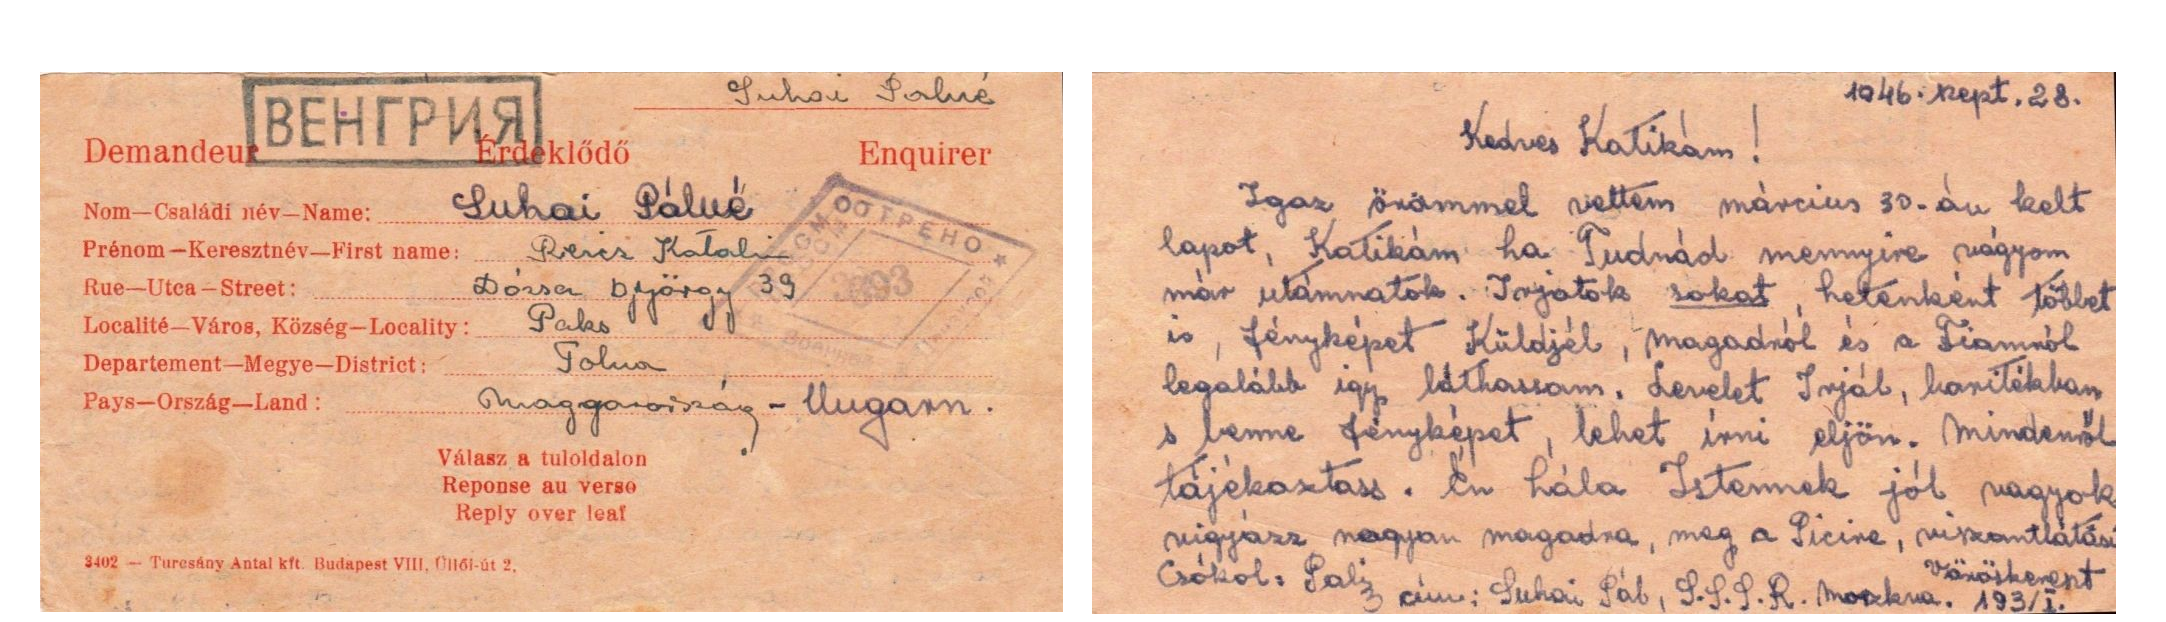 Suhai Pálné
ВЕНГРИЯ
Demandeur Érdeklődő Enquirer
Nom—Családi név—Name: Suhai Pálné
Prénom—Keresztnév—First name: Katalin
Rue—Utca—Street: Dózsa György 39
Localité—Város, Község—Locality: Paks
Departement—Megye—District: Tolna
Pays—Ország—Land: Magyarország - Ungarn.
ОСМОТРЕНО
3693
Válasz a tuloldalon
Reponse au verso
Reply over leaf
3402 — Turcsány Antal kft. Budapest VIII, Üllői-út 2,
1946. szept. 28.
Kedves Katikám!
Igaz örömmel vettem március 30-áu kelt
lapot, Katikám ha Tudnád mennyire vágyom
már utámnatok. Irjatok sokat, hetenként többet
is, fényképet Küldjél, magadról és a Fiamról
legalább igy láthassam. Levelet Irjál, boritékban
s benne fényképet, lehet irni eljön. Mindenről
tájékoztass. Én hála Istennek jól vagyok
vigyázz nagyon magadra, meg a Picire, viszontlátási
Csókol: Pali
cim: Suhai Pál, S.S.S.R. Moszkva. Vöröskereszt 193/I.